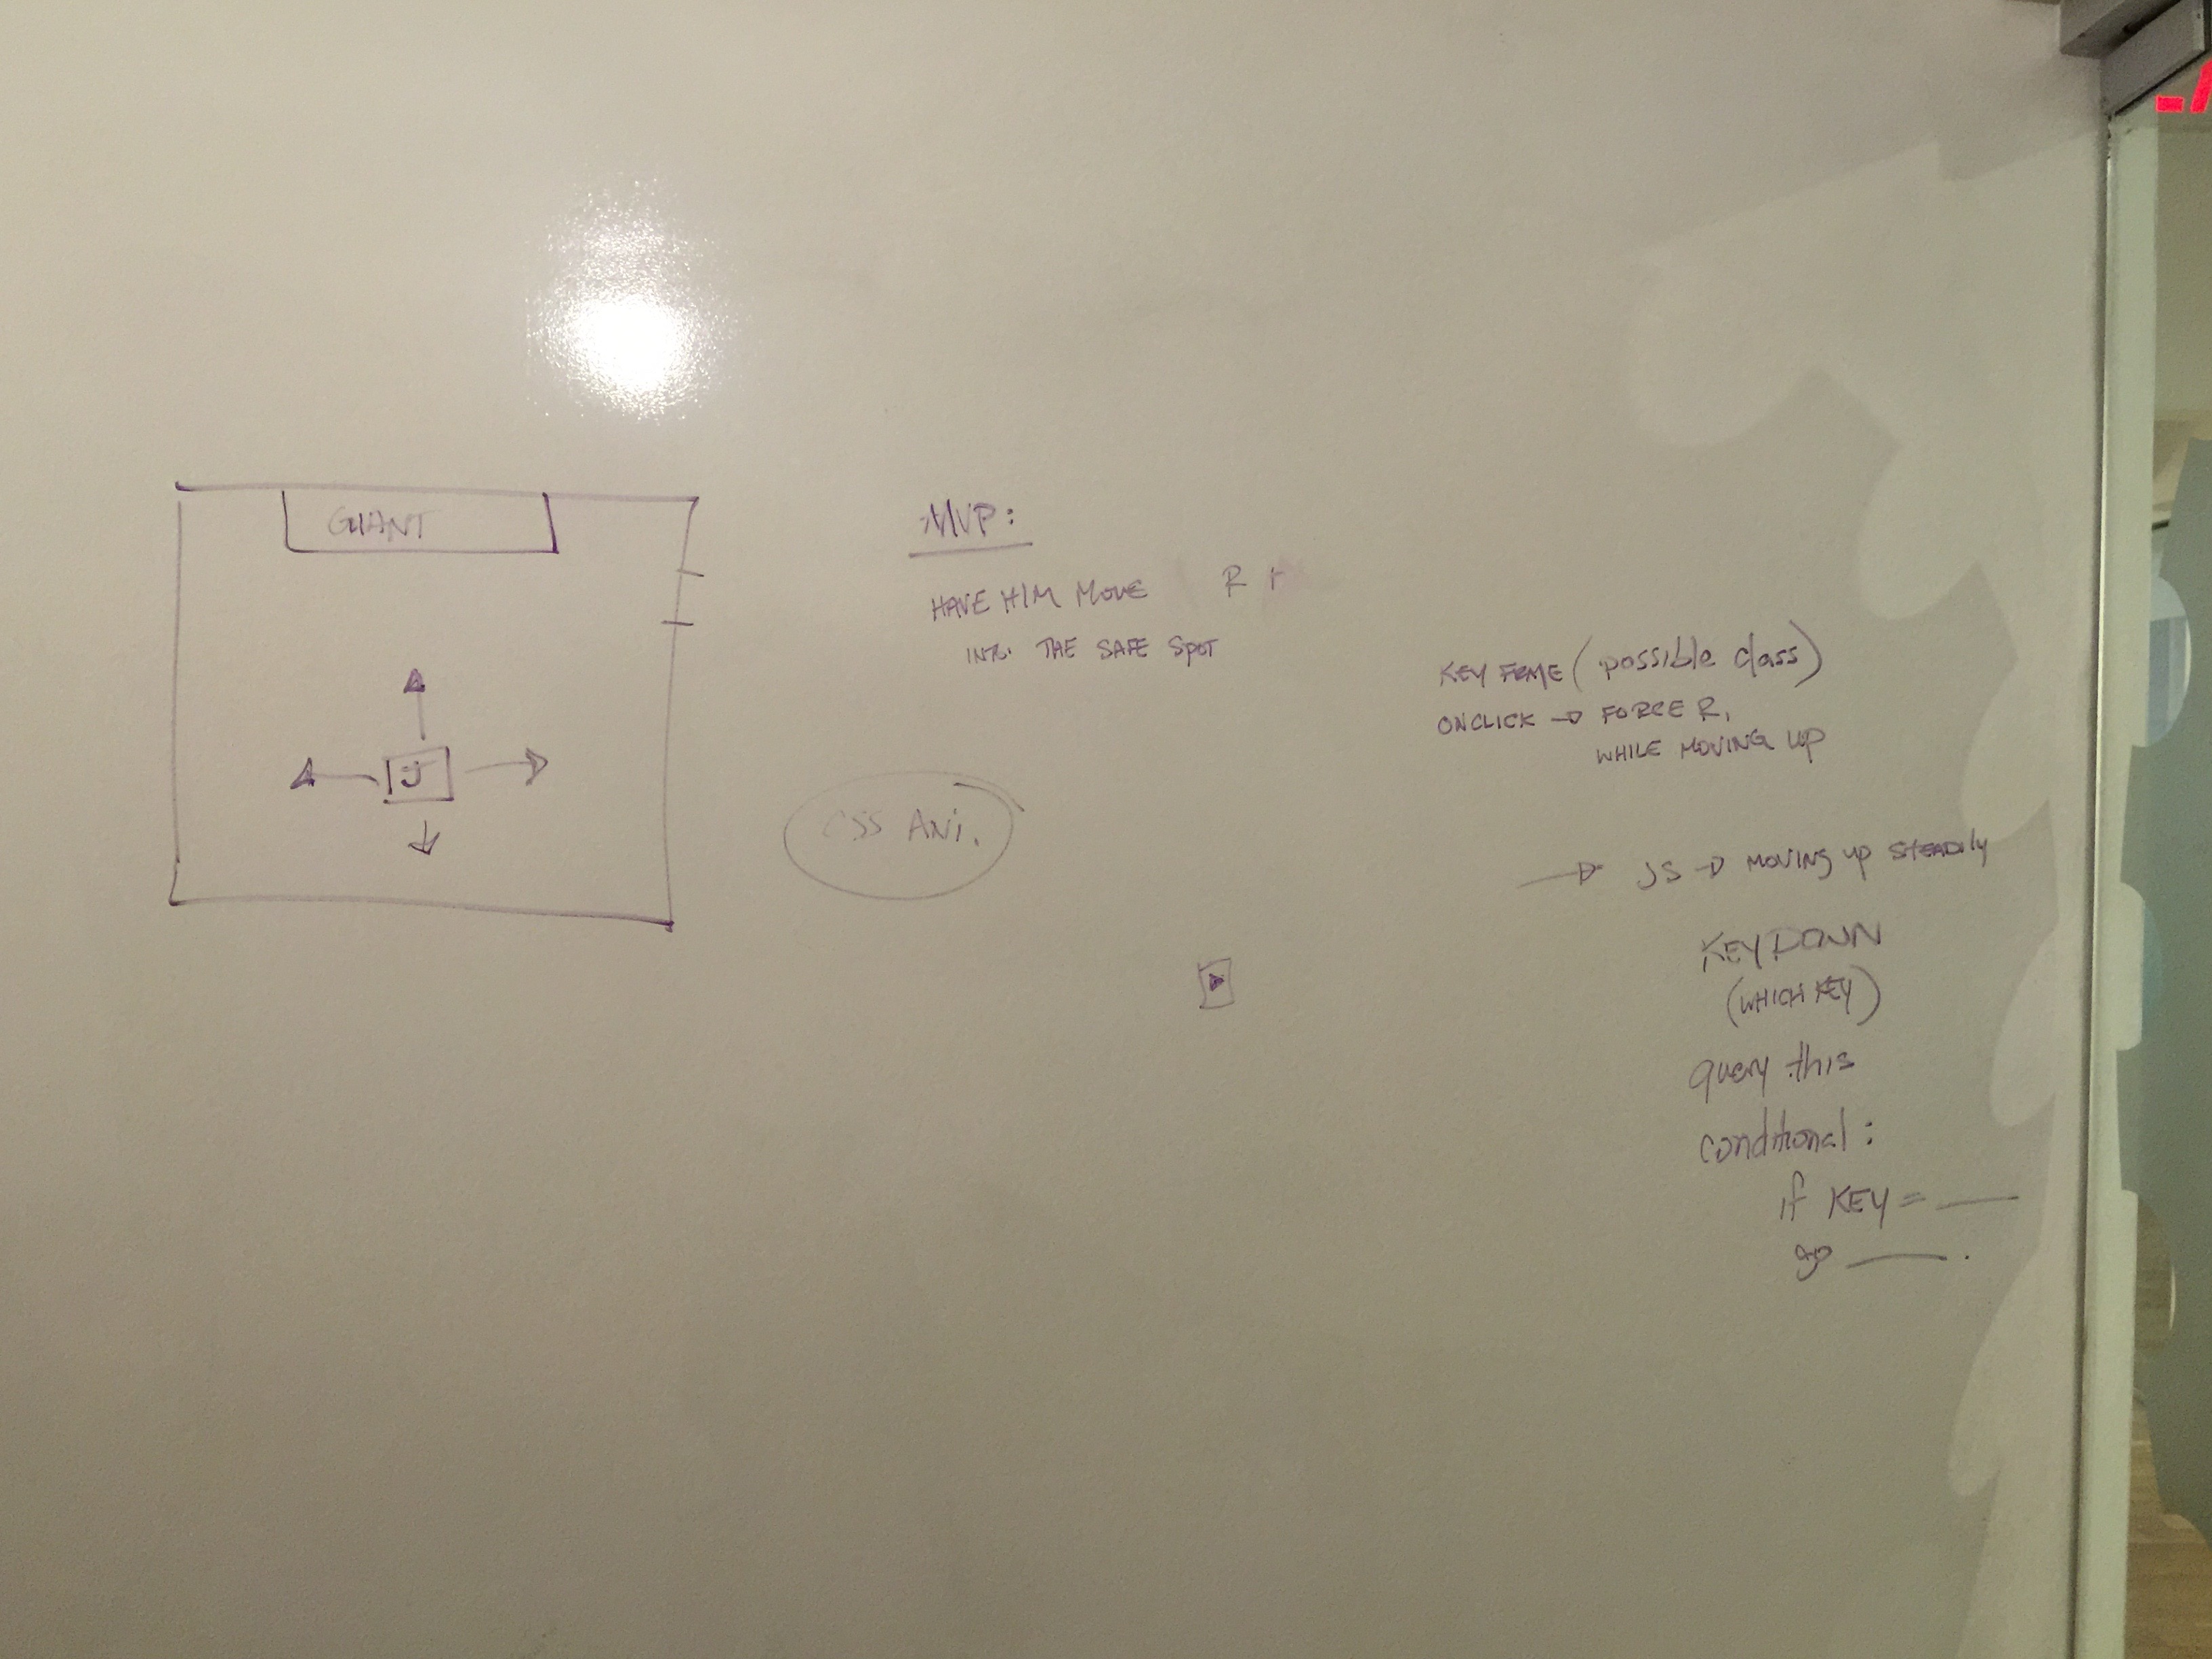 GIANT
J
MVP:
HAVE HIM MOVE R
INTO THE SAFE SPOT
CSS ANi.
KEY FRME (possible class)
ONCLICK → FORCE R,
WHILE MOVING UP
→ JS → MOVING UP STEADILY
KEYDOWN
(WHICH KEY)
query this
conditional:
if KEY = ___
go ___.